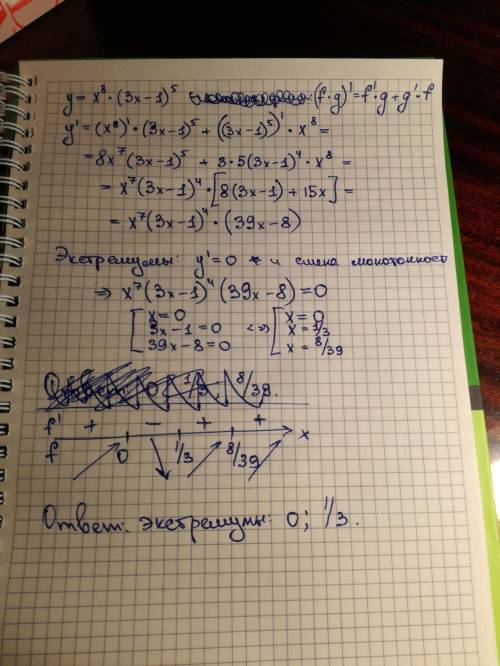 y = x⁸ · (3x−1)⁵ (f·g)' = f'·g + g'·f
y' = (x⁸)' · (3x−1)⁵ + ((3x−1)⁵)' · x⁸ =
= 8x⁷(3x−1)⁵ + 3·5(3x−1)⁴ · x⁸ =
= x⁷(3x−1)⁴ · [8(3x−1) + 15x] =
= x⁷(3x−1)⁴ · (39x−8)
Экстремумы: y'=0 и смена монотонност
⇒ x⁷(3x−1)⁴(39x−8) = 0
[ x=0 <=> [ x=0
3x−1=0 x=1/3
39x−8=0 x=8/39
0 1/3 8/39.
f' + − + +
f 0 1/3 8/39 x
Ответ: экстремумы: 0; 1/3.